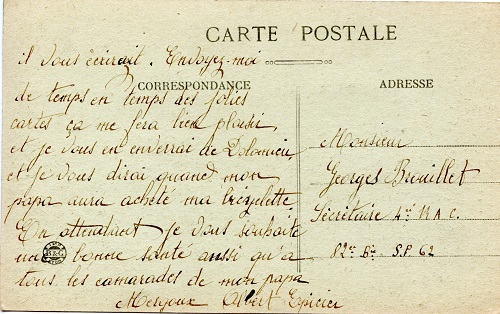 CARTE POSTALE
CORRESPONDANCE
ADRESSE
il vous écrirait. Envoyez-moi
de temps en temps des jolies
cartes ça me fera bien plaisir,
et je vous en enverrai de Dolomieu,
et je vous dirai quand mon
papa aura acheté ma bicyclette
En attendant je vous souhaite
une bonne santé ainsi qu'à
tous les camarades de mon papa
Albert Epicier
B&G
Monsieur
Georges Brouillet
Secrétaire 4e R A C.
82e Bie S.P. 62